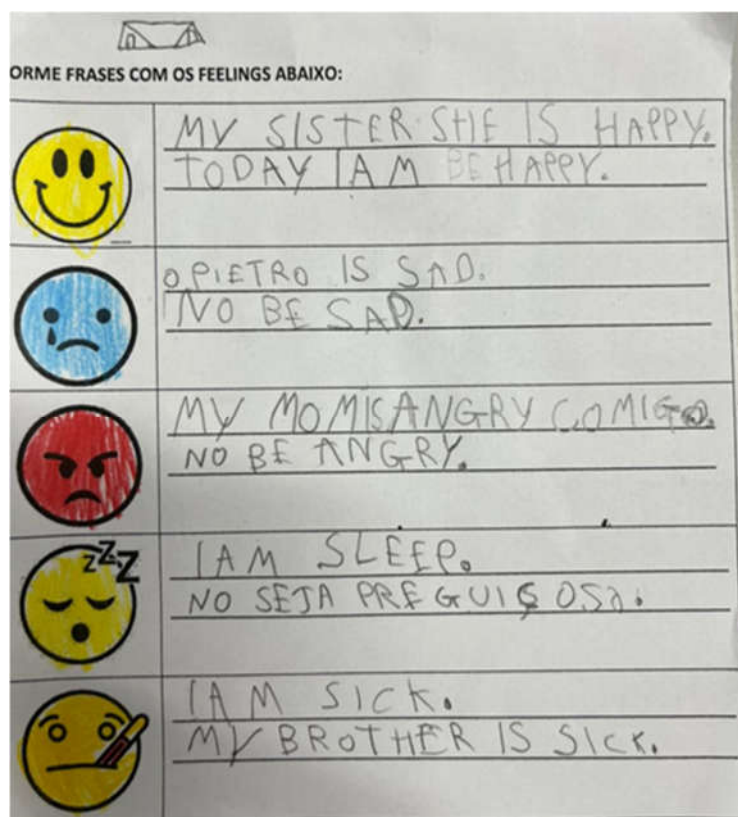 ORME FRASES COM OS FEELINGS ABAIXO:
MY SISTER SHE IS HAPPY.
TODAY I AM BE HAPPY.
O PIETRO IS SAD.
NO BE SAD.
MY MOM IS ANGRY COMIGO.
NO BE ANGRY.
zzZ
I AM SLEEP.
NO SEJA PREGUIÇOSA.
I AM SICK.
MY BROTHER IS SICK.